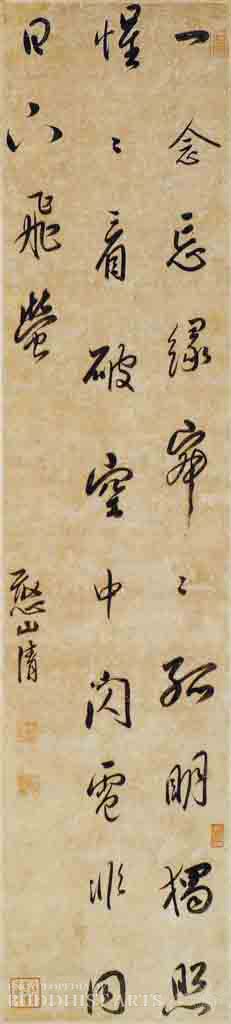 一念忘緣寂〻孤明獨照
惺〻看破空中閃電非同
日下飛螢
憨山清
ENCYCLOPEDIA of
BUDDHIST ARTS